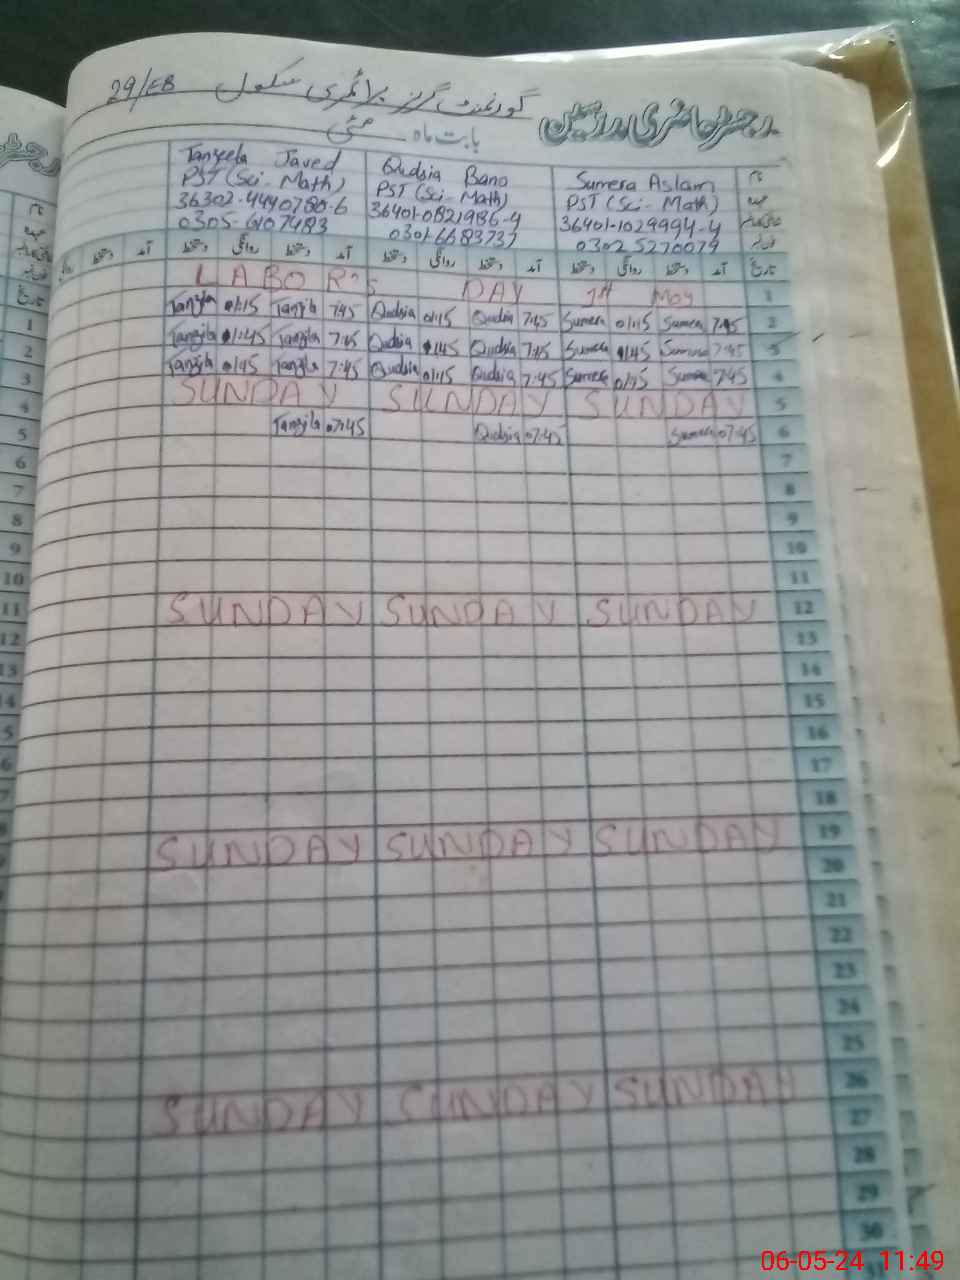 رجسٹر حاضری مدرسین
گورنمنٹ گرلز پرائمری سکول 29/EB
بابت ماہ مئی
نام Sumera Aslam Qudsia Bano Tanzeela Javed
عہدہ PST (Sci-Math) PST (Sci-Math) PST (Sci-Math)
36401-1029994-4 36401-0821986-4 36302-4440780-6
0302 5270079 0301-6683737 0305-6107483
تاریخ آمد دستخط روانگی دستخط آمد دستخط روانگی دستخط آمد دستخط روانگی دستخط آمد دستخط
LABOR'S DAY 1st May 1
Tanzila 01:15 Tanzila 7:45 Qudsia 01:15 Qudsia 7:45 Sumera 01:15 Sumera 7:45 2
Tanzila 01:45 Tanzila 7:45 Qudsia 01:45 Qudsia 7:45 Sumera 01:45 Sumera 7:45 3
Tanzila 01:45 Tanzila 7:45 Qudsia 01:15 Qudsia 7:45 Sumera 01:45 Sumera 7:45 4
SUNDAY SUNDAY SUNDAY 5
Tanzila 07:45 Qudsia 07:45 Sumera 07:45 6
7
8
9
10
11
SUNDAY SUNDAY SUNDAY 12
13
14
15
16
17
18
SUNDAY SUNDAY SUNDAY 19
20
21
22
23
24
25
SUNDAY SUNDAY SUNDAY 26
27
28
29
30
31
1
2
3
4
5
6
7
8
9
10
11
12
13
14
06-05-24 11:49